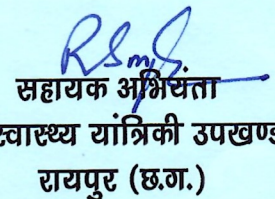 सहायक अभियंता
स्वास्थ्य यांत्रिकी उपखण्ड
रायपुर (छ.ग.)